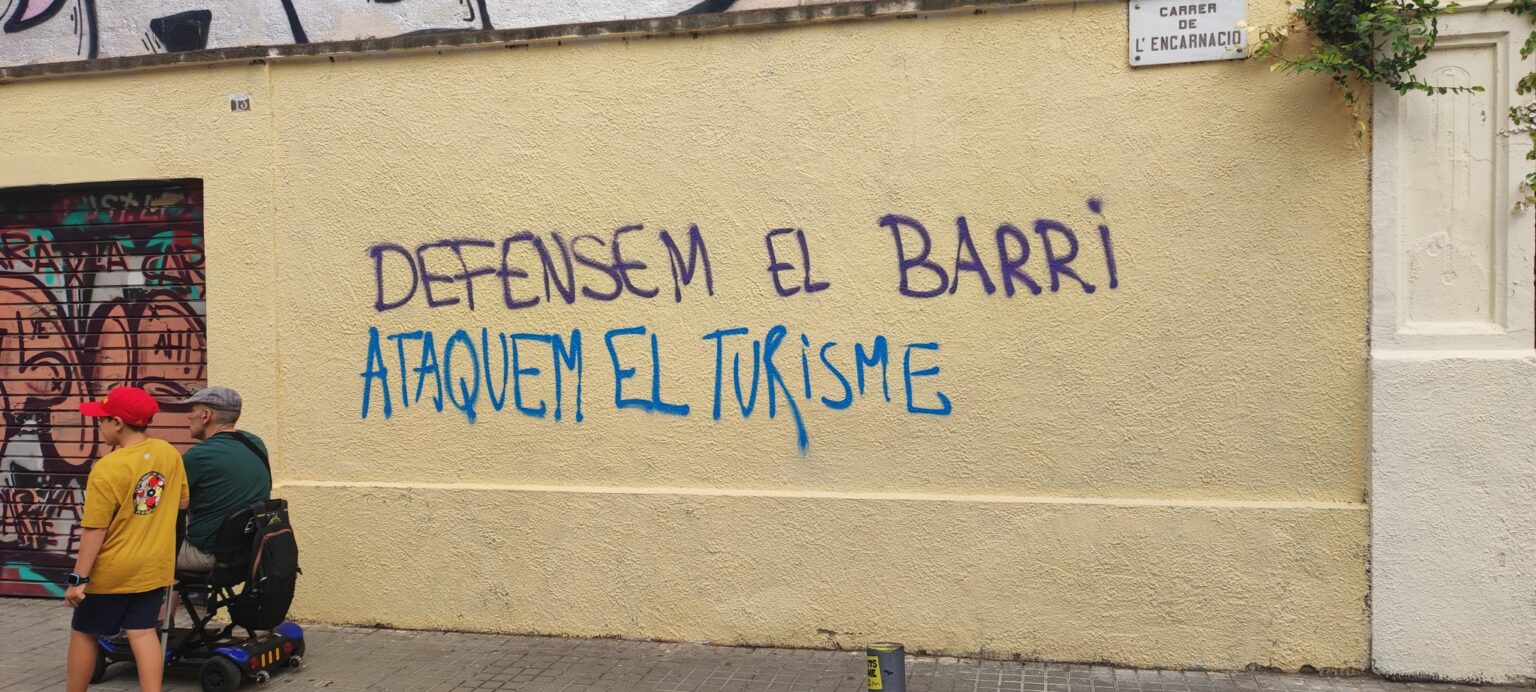 CARRER
DE
L'ENCARNACIO
13
DEFENSEM EL BARRI
ATAQUEM EL TURISME
AH!